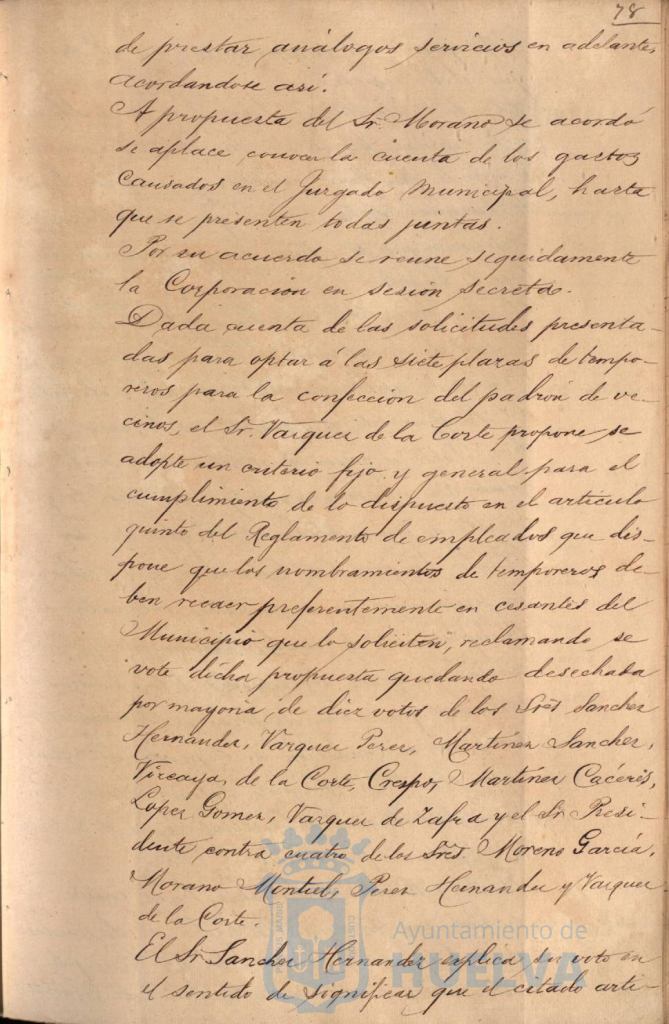 78
de prestar análogos servicios en adelante,
acordandose así.
A propuesta del Sr. Moraño se acordó
se aplace conocer la cuenta de los gastos
causados en el Juzgado Municipal, hasta
que se presenten todas juntas.
Por su acuerdo se reune seguidamente
la Corporación en sesión secreta.
Dada cuenta de las solicitudes presenta-
das para optar á las siete plazas de tempo-
reros para la confección del padrón de ve-
cinos, el Sr. Vazquez de la Corte propone se
adopte un criterio fijo y general para el
cumplimiento de lo dispuesto en el articulo
quinto del Reglamento de empleados que dis-
pone que los nombramientos de temporeros de-
ben recaer preferentemente en cesantes del
Municipio que lo soliciten, reclamando se
vote dicha propuesta quedando desechada
por mayoria de diez votos de los Srēs Sanchez
Hernandez, Vazquez Perez, Martinez Sanchez,
Vizcaya, de la Corte, Crespo, Martinez Cacéres,
López Gomez, Vazquez de Zafra y el Sr Presi-
dente contra cuatro de los Srēs. Moreno García,
Morano Montiel, Perez Hernandez y Vazquez
de la Corte.
El Sr Sanchez Hernandez explica su voto en
el sentido de significar que el citado arti-
Ayuntamiento de
HUELVA